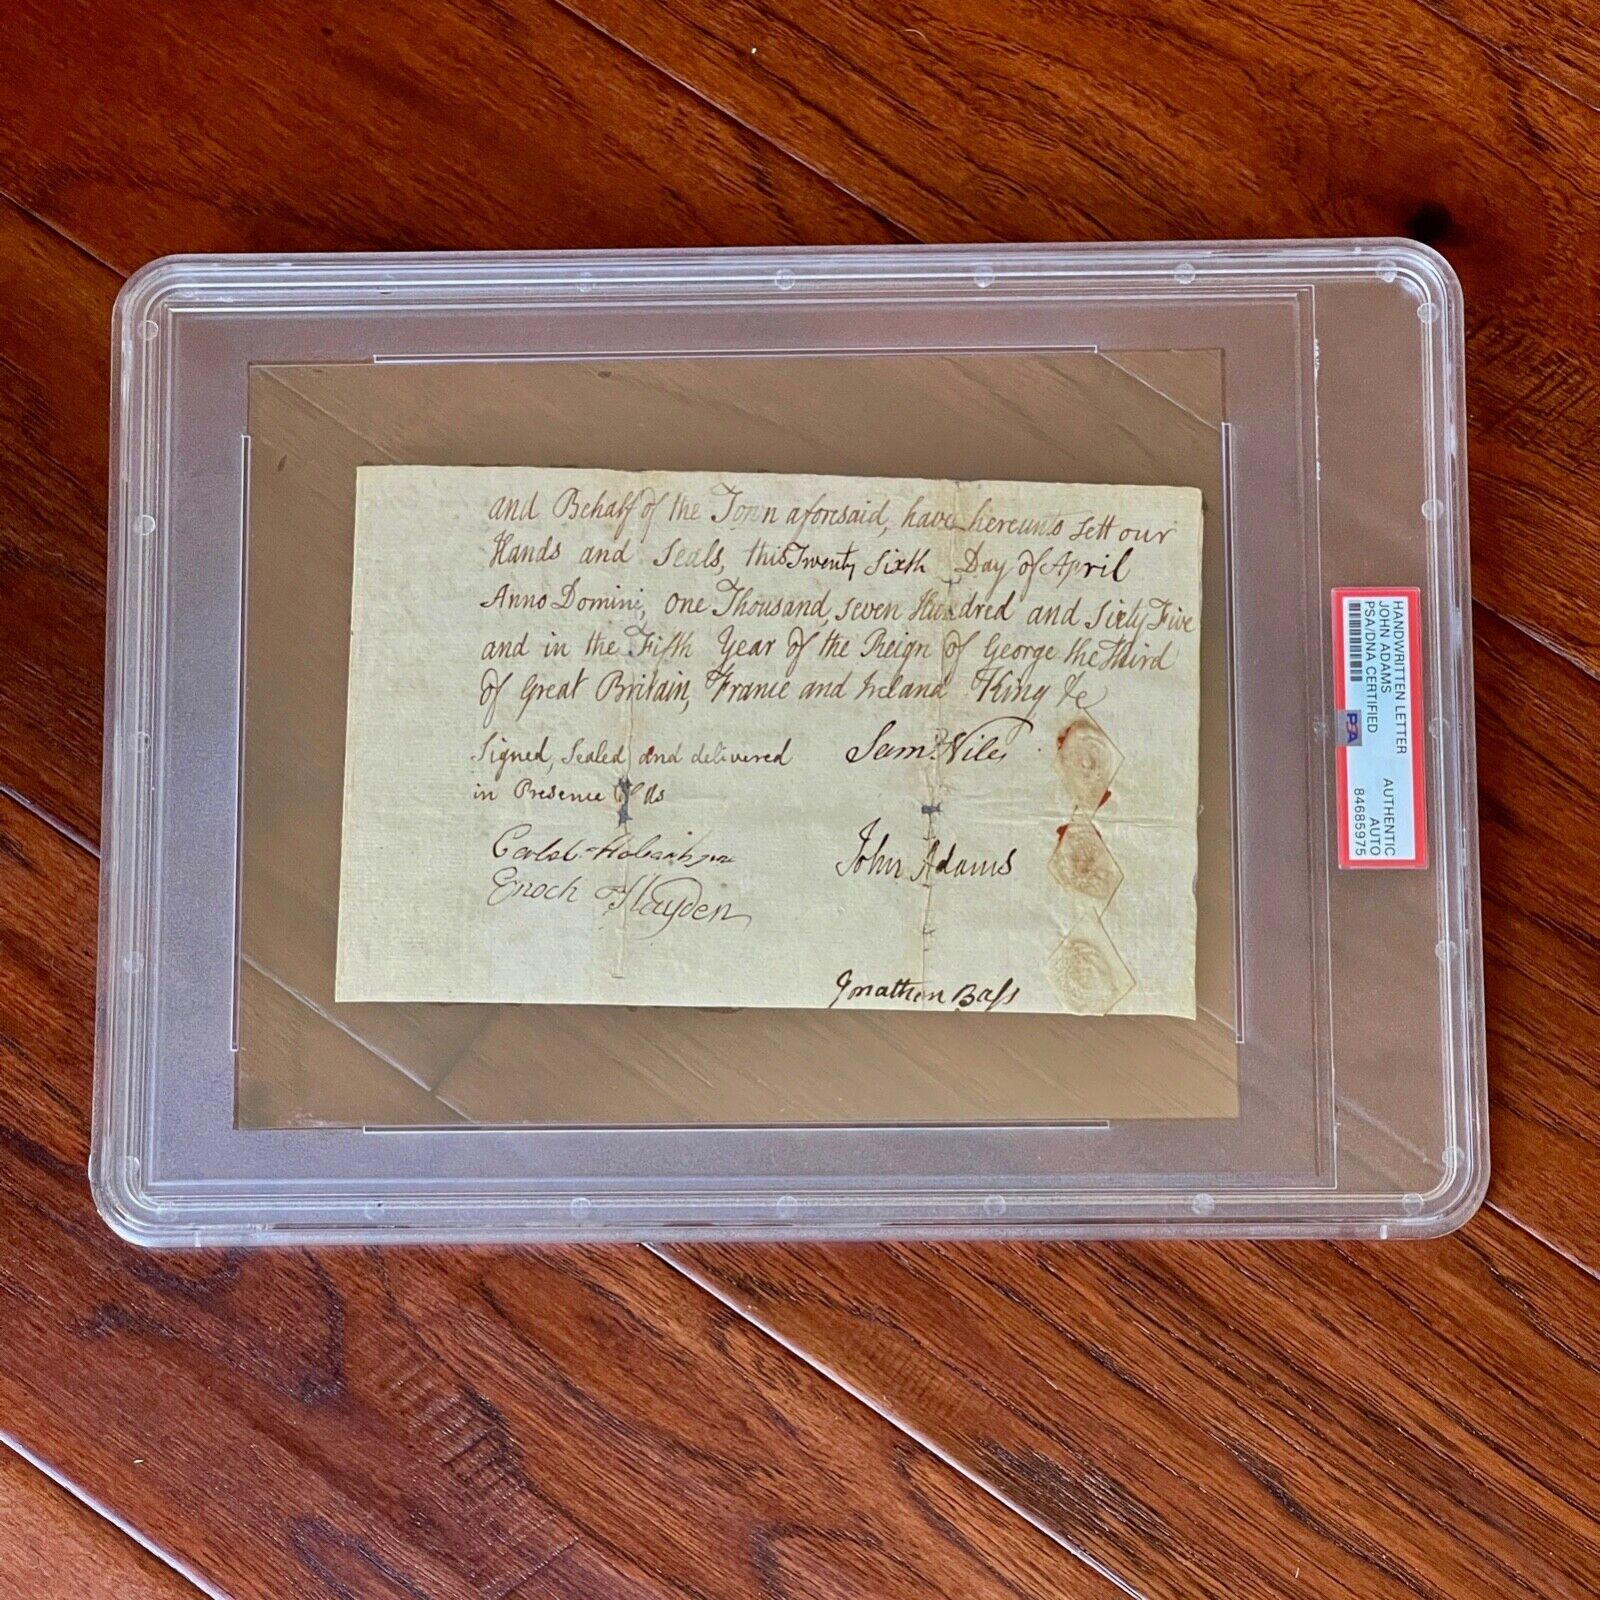 and Behalf of the Town aforesaid, have hereunto sett our
Hands and Seals, this Twenty Sixth Day of April
Anno Domini, One Thousand, Seven Hundred and Sixty Five
and in the Fifth Year of the Reign of George the Third
of Great Britain, France and Ireland King &c
Signed, Sealed and delivered
in Presence of Us
Sam. Niles
John Adams
Enoch Hayden
Jonathan Bass
HANDWRITTEN LETTER
JOHN ADAMS
PSA/DNA CERTIFIED
AUTHENTIC
AUTO
84685975
PSA